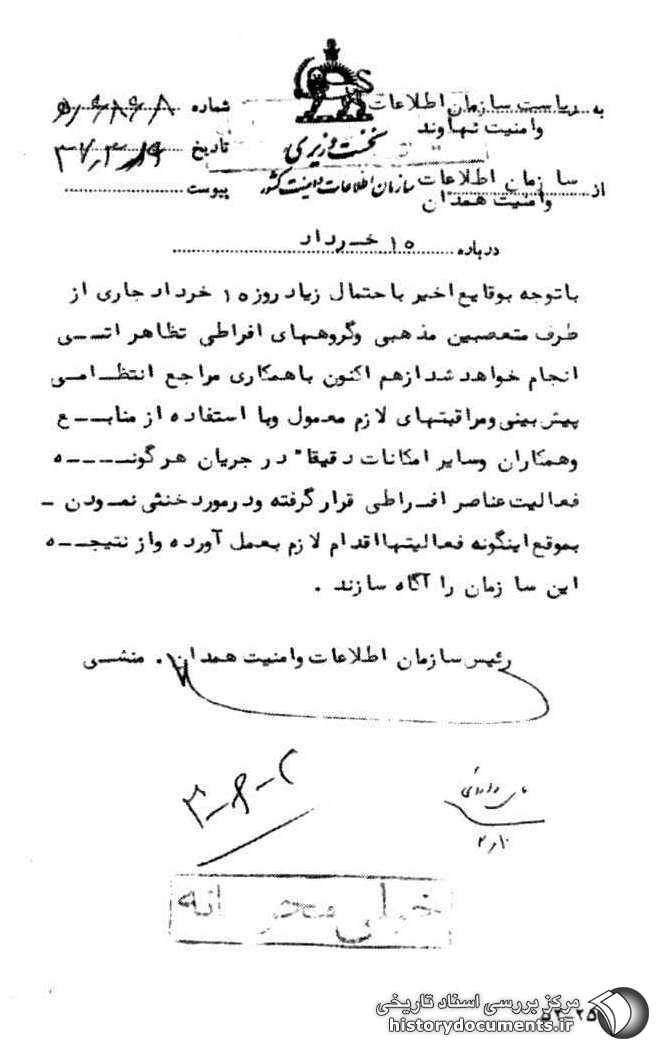 به ریاست سازمان اطلاعات
وامنیت نهاوند
نخست وزیری
سازمان اطلاعات وامنیت کشور
از سا زمان اطلاعات
وامنیت همدان
شماره
تاریخ
پیوست
درباره ۱۵ خرداد
باتوجه بوقایع اخیر باحتمال زیاد روز ۱۵ خرداد جاری از
طرف متعصبین مذهبی وگروههای افراطی تظاهراتی
انجام خواهد شد ازهم اکنون باهمکاری مراجع انتظامی
پیش بینی ومراقبتهای لازم معمول وبا استفاده از منابع
وهمکاران وسایر امکانات دقیقا" در جریان هرگونه
فعالیت عناصر افراطی قرار گرفته ودرمورد خنثی نمودن -
بموقع اینگونه فعالیتها اقدام لازم بعمل آورده واز نتیجه
این سا زمان را آگاه سازند .
رئیس سازمان اطلاعات وامنیت همدان . منشی
خیلی محرمانه
مرکز بررسی اسناد تاریخی
historydocuments.ir